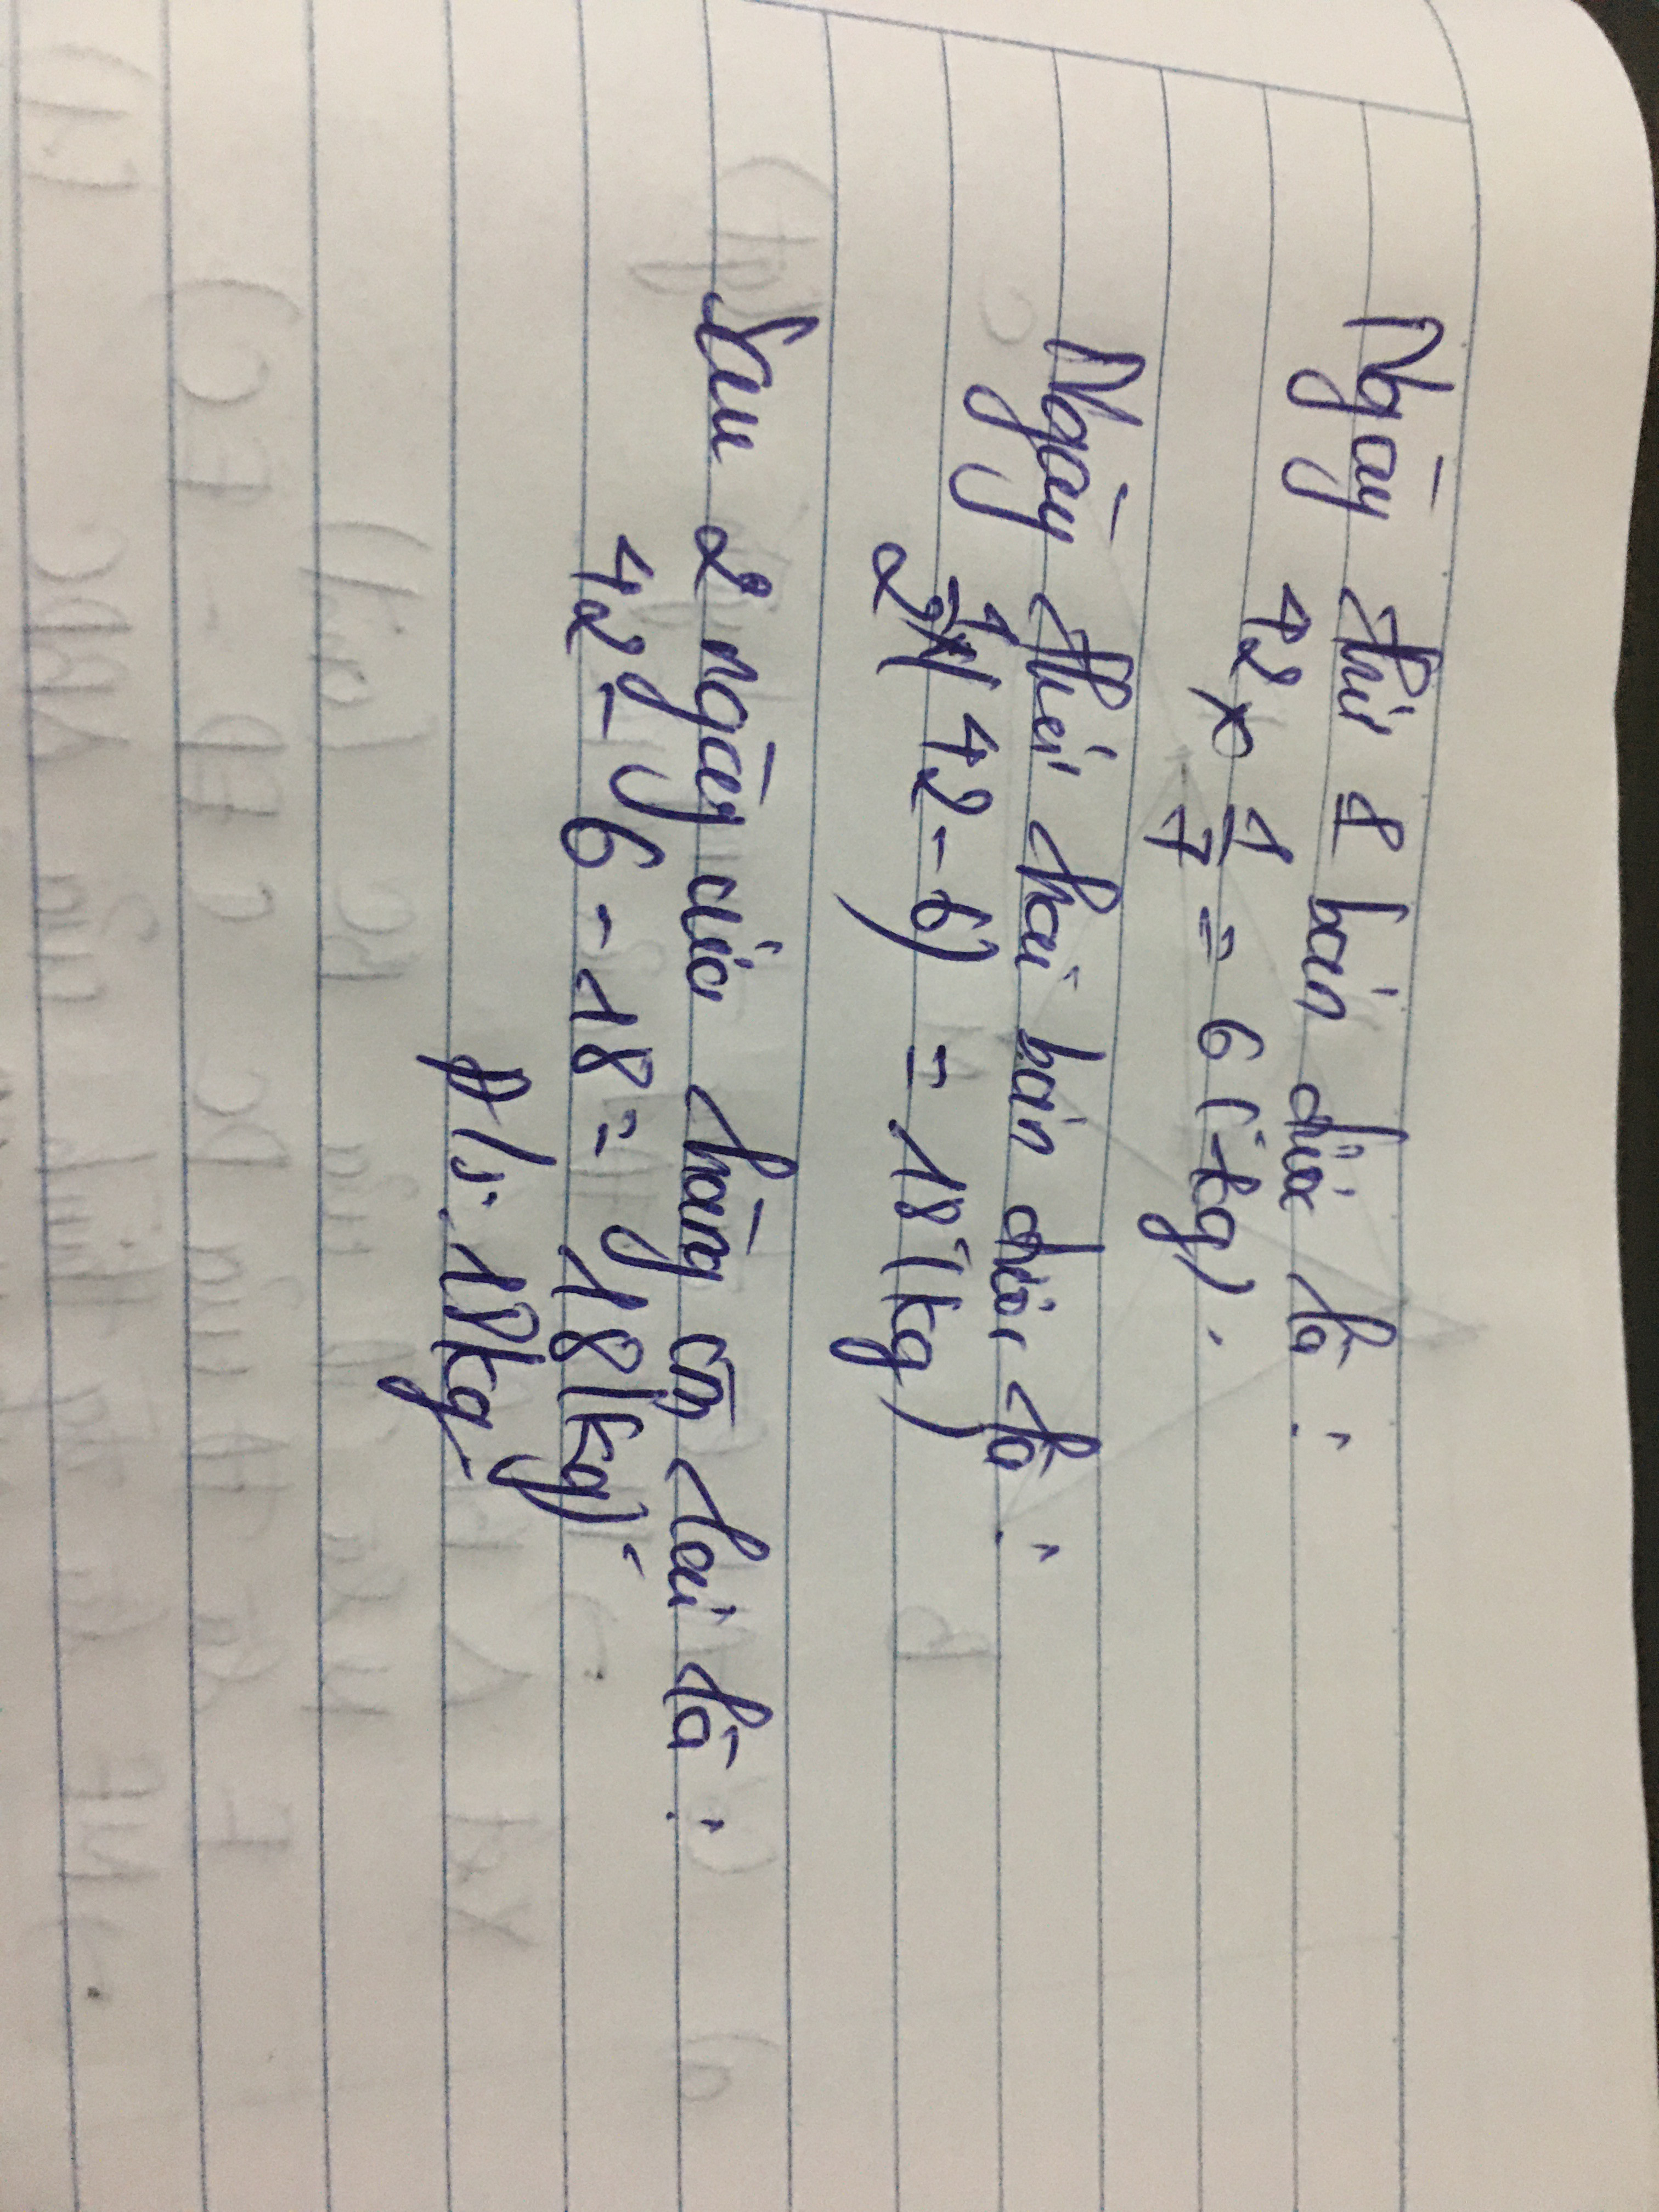 Ngày thứ 1 bán được là :
42 x 1/7 = 6 (kg).
Ngày thứ hai bán được là :
1/2 x (42 - 6) = 18 (kg)
Sau 2 ngày cửa hàng còn lại là :
42 - 6 - 18 = 18 (kg)
Đ/s: 18kg.